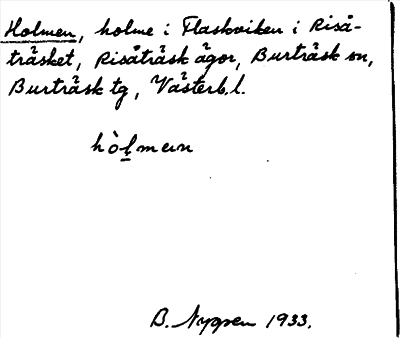 Holmen, holme i Flaskviken i Риså-
träsket, Risåträsk ägor, Burträsk sn,
Burträsk tg, Västerb.l.
hòlmen
B. Nygren 1933.